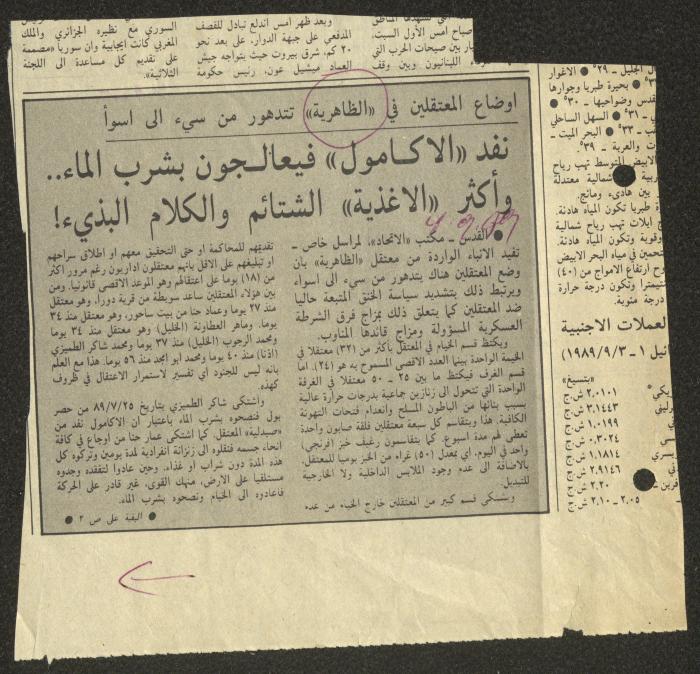 السوري مع نظيره الجزائري والملك
المغربي كانت ايجابية وان سوريا «مصممة
على تقديم كل مساعدة الى اللجنة
الثلاثية».
وبعد ظهر امس اندلع تبادل للقصف
المدفعي على جبهة الدوار، على بعد نحو
٢٠ كم، شرق بيروت حيث يتواجه جيش
العماد ميشيل عون، رئيس حكومة
صباح امس الأول السبت،
بين صيحات الحرب التي
اللبنانيون وبين وقف
اوضاع المعتقلين في «الظاهرية» تتدهور من سيء الى اسوأ
نفد «الاكامول» فيعالجون بشرب الماء..
وأكثر «الاغذية» الشتائم والكلام البذيء!
● القدس - مكتب «الاتحاد»، لمراسل خاص -
تفيد الانباء الواردة من معتقل «الظاهرية» بأن
وضع المعتقلين هناك يتدهور من سيء الى اسواء
ويرتبط ذلك بتشديد سياسة الخنق المتبعة حاليا
ضد المعتقلين كما يتعلق ذلك بمزاج فرق الشرطة
العسكرية المسؤولة ومزاج قائدها المناوب.
ويكتظ قسم الخيام في المعتقل بأكثر من (٣٢) معتقلا في
الخيمة الواحدة بينما العدد الاقصى المسموح به هو (٢٤). اما
قسم الغرف فيكتظ ما بين ٢٥ - ٥٠ معتقلا في الغرفة
الواحدة التي تتحول الى زنازين جماعية بدرجات حرارة عالية
بسبب بنائها من الباطون المسلح وانعدام فتحات التهوئة
الكافية. هذا ويتقاسم كل سبعة معتقلين فلقة صابون واحدة
تعطى لهم مدة اسبوع. كما يتقاسمون رغيف خبز (فرنجي)
واحد في اليوم. اي بمعدل (٥٠) غراما من الخبز يوميا للمعتقل.
بالاضافة الى عدم وجود الملابس الداخلية ولا الخارجية
للتبديل.
ويشتكي قسم كبير من المعتقلين خارج الخيام من عدم
تقديمهم للمحاكمة او حتى التحقيق معهم او اطلاق سراحهم
او تبليغهم على الاقل بانهم معتقلون اداريون رغم مرور اكثر
من (١٨) يوما على اعتقالهم وهو الموعد الاقصى قانونيا. ومن
بين هؤلاء المعتقلين ساعد سويطة من قرية دورا، وهو معتقل
منذ ٢٧ يوما وعماد حنا من بيت ساحور، وهو معتقل منذ ٣٤
يوما. وماهر العطاونة (الخليل) وهو معتقل منذ ٣٤ يوما
ومحمد الرجوب (الخليل) منذ ٣٧ يوما ومحمد شاكر الطميزي
(اذنا) منذ ٤٠ يوما ومحمد ابو امجد منذ ٥٦ يوما. هذا مع العلم
بانه ليس للجنود أي تفسير لاستمرار الاعتقال في ظروف
كهذه.
واشتكى شاكر الطميزي بتاريخ ٨٩/٧/٢٥ من حصر
بول فنصحوه بشرب الماء باعتبار ان الاكامول نفد من
«صيدلية» المعتقل. كما اشتكى عمار حنا من اوجاع في كافة
انحاء جسمه فنقلوه الى زنزانة انفرادية لمدة يومين وتركوه كل
هذه المدة دون شراب او غذاء. وحين عادوا لتفقده وجدوه
مستلقيا على الارض، منهك القوى، غير قادر على الحركة
فأعادوه الى الخيام ونصحوه بشرب الماء.
● البقية على ص ٢ ●
الجليل - ٢٩° ● الاغوار
● بحيرة طبريا وجوارها
القدس وضواحيها - ٣٠° ●
- ٣١° ● السهل الساحلي
- ٣٣° ● البحر الميت -
والعربة - ٣٩°.
الابيض المتوسط تهب رياح
شمالية معتدلة
بين هادىء ومائج.
طبريا تكون المياه هادئة.
ايلات تهب رياح شمالية
وقوية وتكون المياه هادئة.
في مياه البحر الابيض
ارتفاع الامواج من (٤٠)
سنتيمترا وتكون درجة حرارة
درجة مئوية.
العملات الاجنبية
(١٩٨٩/٩/٣-١
«بتسيغ»
٢،٠١٠١ ش.ج
٣،١٤٤٣ ش.ج
١،٠١٩٩ ش.ج
٠،٣٠٢٤ ش.ج
١،١٨١٤ ش.ج
٢،٩١٤٦ ش.ج
٢،٢٠ ش.ج
٢،٠٥ - ٢،١٠ ش.ج